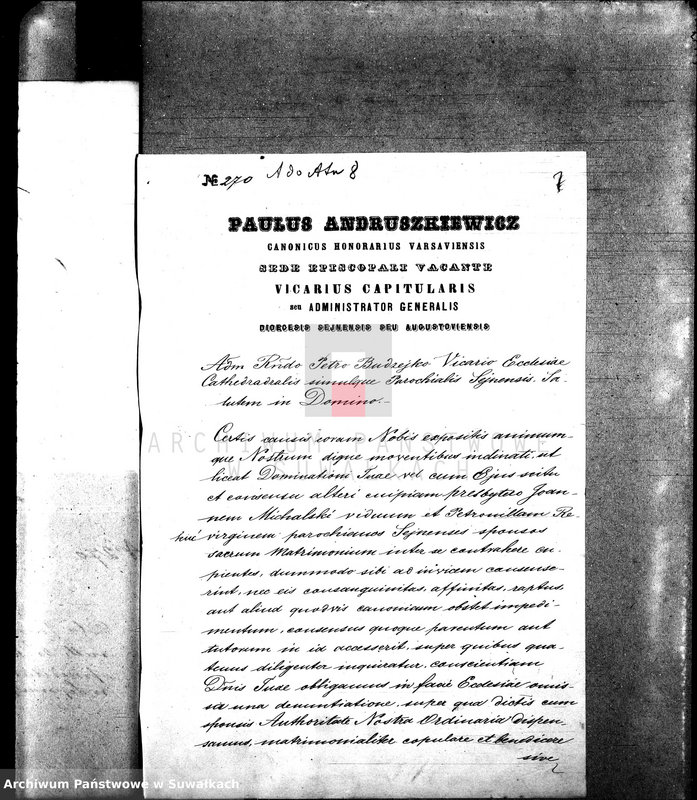 № 270 Ado Atu 8
7
PAULUS ANDRUSZKIEWICZ
CANONICUS HONORARIUS VARSAVIENSIS
SEDE EPISCOPALI VACANTE
VICARIUS CAPITULARIS
seu ADMINISTRATOR GENERALIS
DIOECESIS SEJNENSIS SEU AUGUSTOVIENSIS
Adm Rndo Petro Budzejko Vicario Ecclesiae
Cathedradralis simulque Parochialis Sejnensis. Sa-
lutem in Domino.-
Certis causis coram Nobis expositis animum-
que Nostrum digne moventibus inclinati, ut
liceat Dominationi Tuae vel cum Ejus scitu
et consensu alteri cuipiam presbytero Joan-
nem Michalski viduum et Petronillam Re-
kuć virginem parochianos Sejnenses sponsos
sacrum Matrimonium inter se contrahere cu-
pientes, dummodo sibi ad invicem consense-
rint, nec eis consanguinitas, affinitas, raptus,
aut aliud quodvis canonicum obstet impedi-
mentum, consensus quoque parentum aut
tutorum in id accesserit, super quibus qua-
tenus diligenter inquiratur, conscientiam
Dnis Tuae obligamus in facie Ecclesiae omis-
sa una denuntiatione, super qua dictis cum
sponsis Authoritate Nostra Ordinaria dispen-
samus, matrimonialiter copulare et benedicere
sive
ARCHIWUM PAŃSTWOWE
W SUWAŁKACH
Archiwum Państwowe w Suwałkach